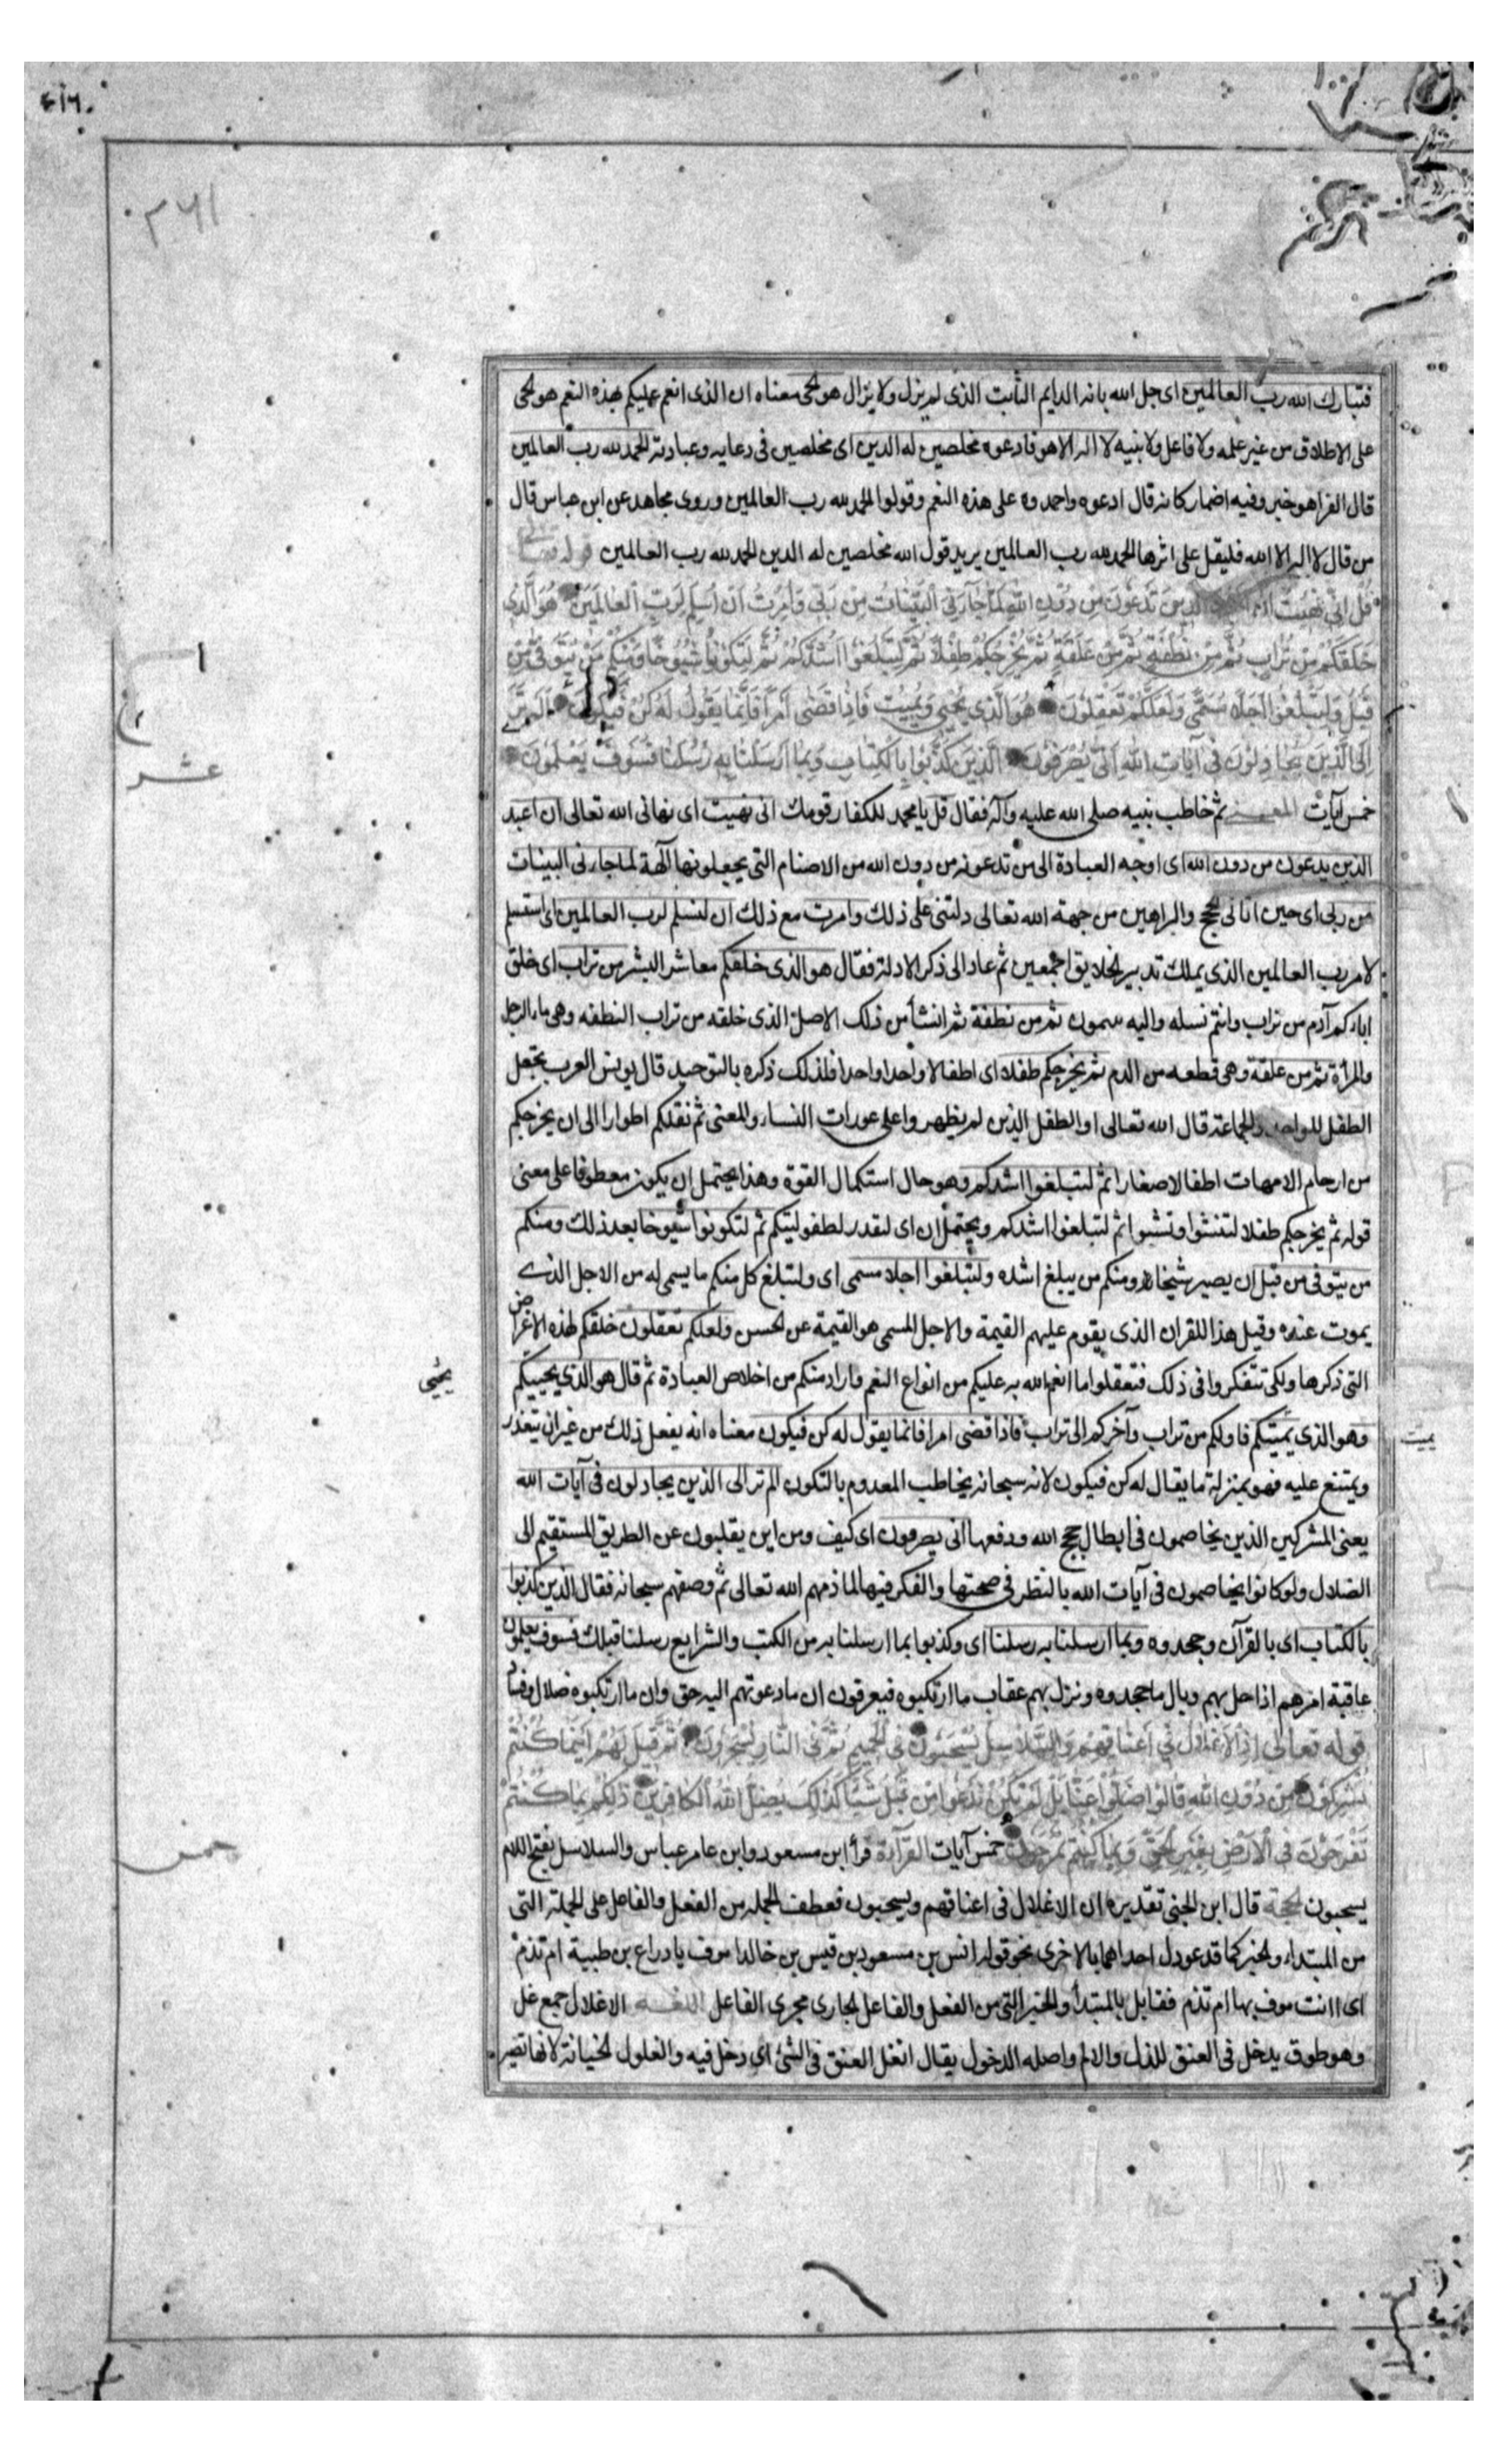 ٤١٦
٣٦١
فتبارك الله رب العالمين اى جل الله بانه الدايم الثابت الذى لم يزل ولا يزال هو الحى معناه ان الذى انعم عليكم بهذه النعم هو الحى
على الاطلاق من غير علة ولا فاعل ولا بنيه لا اله الا هو فادعوه مخلصين له الدين اى مخلصين فى دعايه وعبادته الحمد لله رب العالمين
قال الفرا هو خبر وفيه اضمار كانه قال ادعوه واحمدوه على هذه النعم وقولوا الحمد لله رب العالمين وروى مجاهد عن ابن عباس قال
من قال لا اله الا الله فليقل على اثرها الحمد لله رب العالمين يريد قول الله مخلصين له الدين الحمد لله رب العالمين قوله تعالى
قُل اِنّى نُهيتُ ان اعبد الذينَ تَدعُونَ مِن دُونِ اللهِ لَمّا جاءَنِىَ البَيّناتُ مِن رَبّى وَاُمِرتُ اَن اُسلِمَ لِرَبِّ العالَمينَ هُوَ الَّذى
خَلَقَكُم مِن تُرابٍ ثُمَّ مِن نُطفَةٍ ثُمَّ مِن عَلَقَةٍ ثُمَّ يُخرِجُكُم طِفلاً ثُمَّ لِتَبلُغُوا اَشُدَّكُم ثُمَّ لِتَكُونُوا شُيُوخًا وَمِنكُم مَن يُتَوَفّى مِن
قَبلُ وَلِتَبلُغُوا اَجَلاً مُسَمًّى وَلَعَلَّكُم تَعقِلُونَ هُوَ الَّذى يُحيى وَيُميتُ فَاِذا قَضى اَمرًا فَاِنَّما يَقُولُ لَهُ كُن فَيَكُونُ اَلَم تَرَ
اِلَى الَّذينَ يُجادِلُونَ فى آياتِ اللهِ اَنّى يُصرَفُونَ الَّذينَ كَذَّبُوا بِالكِتابِ وَبِما اَرسَلنا بِهِ رُسُلَنا فَسَوفَ يَعلَمُونَ
عشر
خمس آيات المعنى ثم خاطب نبيه صلى الله عليه وآله فقال قل يا محمد للكفار قومك انى نهيت اى نهانى الله تعالى ان اعبد
الذين يدعون من دون الله اى اوجه العبادة الى من تدعونه من دون الله من الاصنام التى يجعلونها آلهة لما جاءنى البينات
من ربى اى حين اتانى الحجج والبراهين من جهة الله تعالى دلتنى على ذلك وامرت مع ذلك ان اسلم لرب العالمين اى استسلم
لامر رب العالمين الذى يملك تدبير الخلايق اجمعين ثم عاد الى ذكر الادلة فقال هو الذى خلقكم معاشر البشر من تراب اى خلق
اباكم آدم من تراب وانتم نسله واليه سمون ثم من نطفة ثم انشأ من ذلك الاصل الذى خلقه من تراب النطفه وهى ماء الرجل
والمرأة ثم من علقة وهى قطعه من الدم ثم يخرجكم طفلا اى اطفالا واحدا واحدا فلذلك ذكره بالتوحيد قال يونس العرب تجعل
الطفل للواحد والجماعة قال الله تعالى او الطفل الذين لم يظهروا على عورات النساء والمعنى ثم نقلكم اطوارا الى ان يخرجكم
من ارحام الامهات اطفالا صغارا ثم لتبلغوا اشدكم وهو حال استكمال القوة وهذا يحتمل ان يكون معطوفا على معنى
قوله ثم يخرجكم طفلا لتنشؤا وتشبوا ثم لتبلغوا اشدكم ويحتمل ان اى لنقدر لطفوليتكم ثم لتكونوا شيوخا بعد ذلك ومنكم
من يتوفى من قبل ان يصير شيخا ومنكم من يبلغ اشده ولتبلغوا اجلا مسمى اى ولتبلغ كل منكم ما يسمى له من الاجل الذى
يموت عنده وقيل هذا للقران الذى يقوم عليهم القيمة والاجل المسمى هو القيمة عن الحسن ولعلكم تعقلون خلقكم لهذه الاغراض
التى ذكرها ولكى تتفكروا فى ذلك فتعقلوا ما انعم الله به عليكم من انواع النعم واراد منكم من اخلاص العبادة ثم قال هو الذى يحييكم
يحيى
وهو الذى يميتكم فاولكم من تراب وآخركم الى تراب فاذا قضى امرا فانما يقول له كن فيكون معناه انه يفعل ذلك من غير ان يتعذر
يميت
ويمتنع عليه فهو بمنزلة ما يقال له كن فيكون لانه سبحانه يخاطب المعدوم بالتكون الم تر الى الذين يجادلون فى آيات الله
يعنى المشركين الذين يخاصمون فى ابطال حجج الله ودفعها انى يصرفون اى كيف ومن اين يقلبون عن الطريق المستقيم الى
الضلال ولو كانوا يخاصمون فى آيات الله بالنظر فى صحتها والفكر فيها لما ذمهم الله تعالى ثم وصفهم سبحانه فقال الذين كذبوا
بالكتاب اى بالقرآن وجحدوه وبما ارسلنا به رسلنا اى وكذبوا بما ارسلنا به من الكتب والشرايع رسلنا قبلك فسوف يعلمون
عاقبة امرهم اذا حل بهم وبال ما جحدوه ونزل بهم عقاب ما ارتكبوه فيعرفون ان ما دعوتهم اليه حق وان ما ارتكبوه ضلال وفساد
قوله تعالى اِذِ الاَغلالُ فى اَعناقِهِم وَالسَّلاسِلُ يُسحَبُونَ فى الحَميمِ ثُمَّ فى النّارِ يُسجَرُونَ ثُمَّ قيلَ لَهُم اَينَما كُنتُم
تُشرِكُونَ مِن دُونِ اللهِ قالُوا ضَلُّوا عَنّا بَل لَم نَكُن نَدعُوا مِن قَبلُ شَيئًا كَذلِكَ يُضِلُّ اللهُ الكافِرينَ ذلِكُم بِما كُنتُم
تَفرَحُونَ فى الاَرضِ بِغَيرِ الحَقِّ وَبِما كُنتُم تَمرَحُونَ خمس آيات القرآءة قرأ ابن مسعود وابن عامر عباس والسلاسل بفتح اللام
خمس
يسحبون الحجة قال ابن الجنى تقديره ان الاغلال فى اعناقهم ويسحبون فعطف الجملة من الفعل والفاعل على الجملة التى
من المبتداء والخبر كما قد عودل احداهما بالاخرى نحو قوله انس بن مسعود بن قيس بن خالدا موف يا دراع بن طبية ام تذم
اى اانت موف بها ام تذم فقابل بالمبتدأ والخبر التى من الفعل والفاعل الجارى مجرى الفاعل اللغــة الاغلال جمع غل
وهو طوق يدخل فى العنق للذل والالم واصله الدخول يقال انغل العنق فى الشئ اى دخل فيه والغلول الخيانة لانها تصير